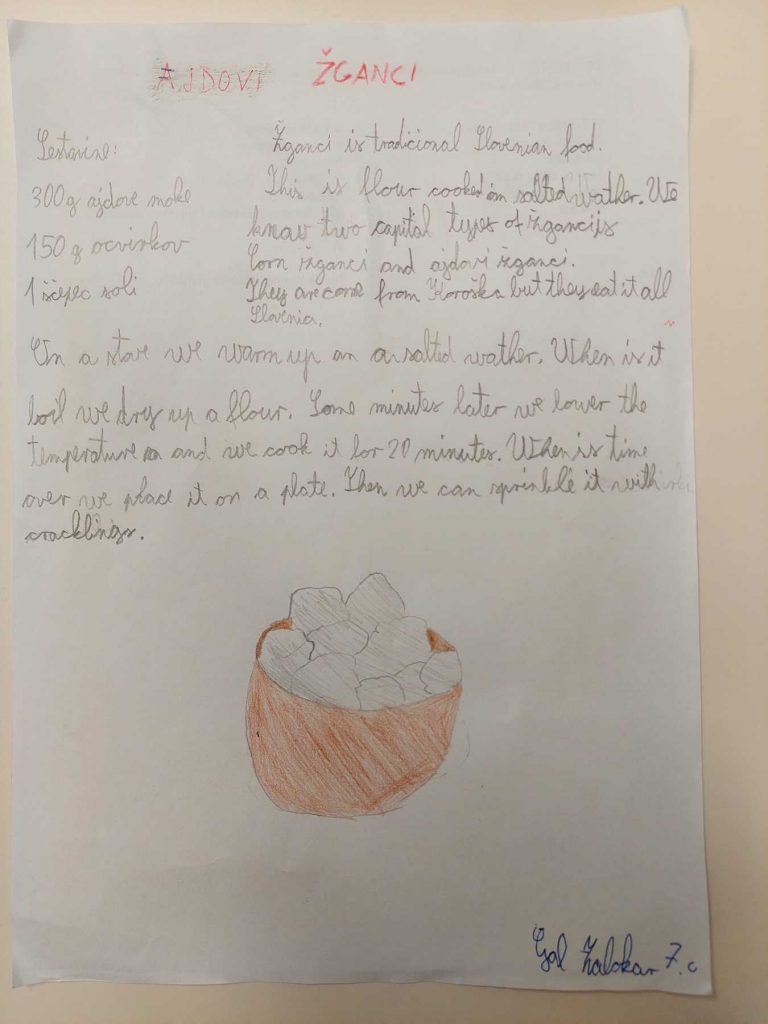 AJDOVI ŽGANCI
Sestavine:
300g ajdove moke
150 g ocvirkov
1 ščepec soli
Žganci is tradicional Slovenian food.
This is flour cooked in salted wather. We
know two capital types of žgancijs
Corn žganci and ajdovi žganci.
They are come from Koroška but they eat it all
Slovenia.
On a stove we warm up an a salted wather. When is it
boil we dry up a flour. Some minutes later we lower the
temperature and we cook it for 20 minutes. When is time
over we place it on a plate. Then we can sprinkle it with
cracklings.
Gal Zalokar 7. c